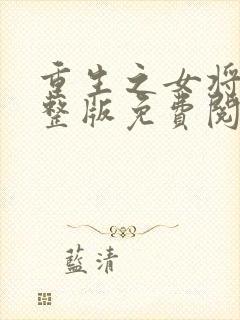 重生之女将
整版免費閱
藍清